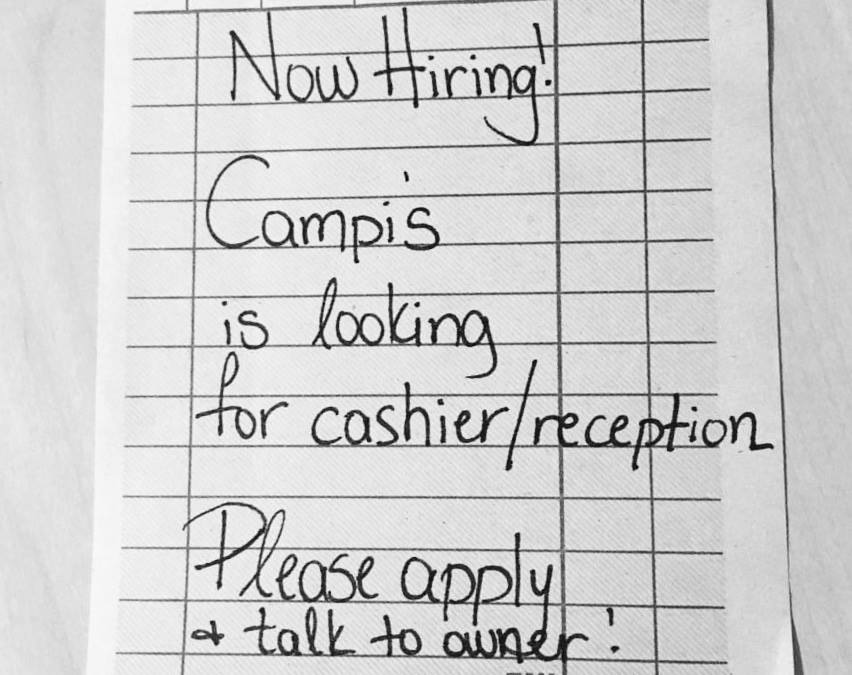 Now Hiring!
Campi's
is looking
for cashier/reception
Please apply
& talk to owner!